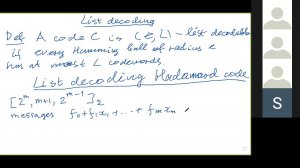 List decoding
Def A code C is (e, L) - list decodable
if every Hamming ball of radius e
has at most L codewords.
List decoding Hadamard code
[2^m, m+1, 2^{m-1}]_2
messages f_0+f_1x_1+...+f_mx_m
S